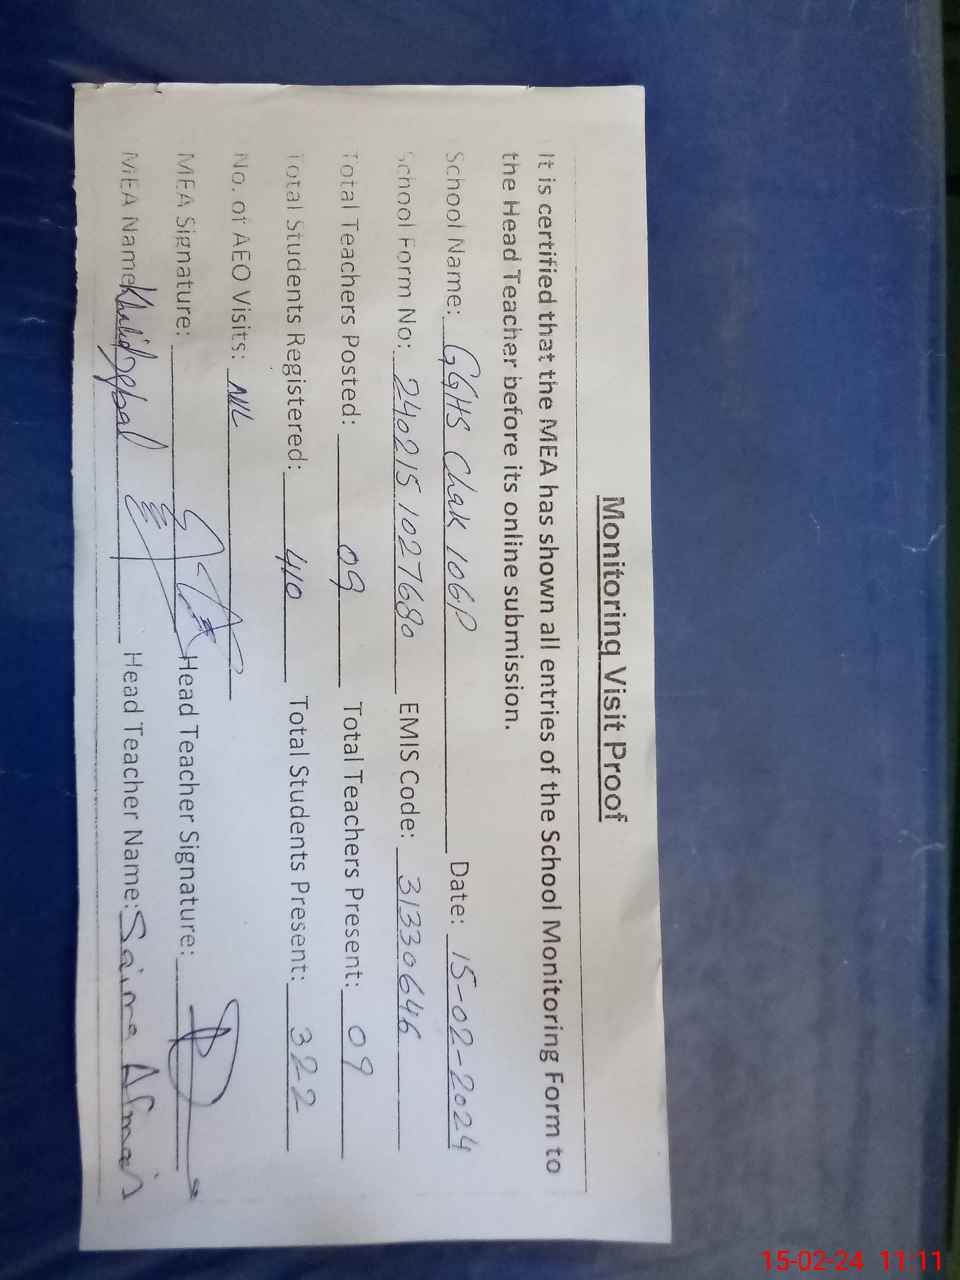 Monitoring Visit Proof
It is certified that the MEA has shown all entries of the School Monitoring Form to
the Head Teacher before its online submission.
School Name: GGHS Chak 106P Date: 15-02-2024
School Form No: 240215 1027680 EMIS Code: 31330646
Total Teachers Posted: 09 Total Teachers Present: 09
Total Students Registered: 410 Total Students Present: 322
No. of AEO Visits: NIL
MEA Signature: Head Teacher Signature:
MEA Name: Khalid Iqbal Head Teacher Name: Saima
15-02-24 11:11